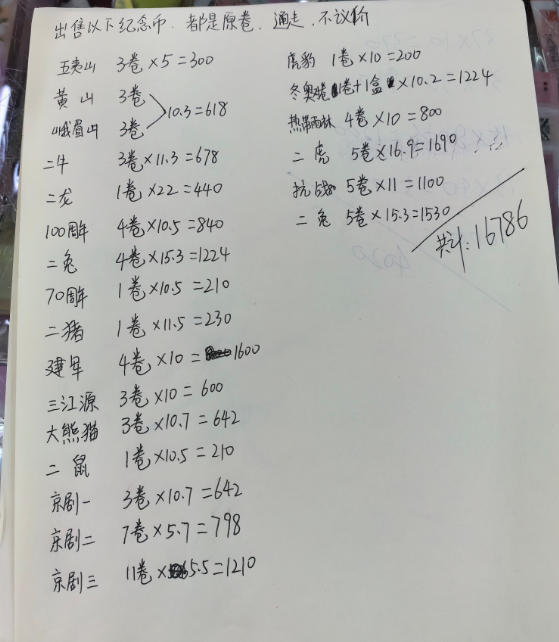 出售以下纪念币,都是原卷,通走,不议价
五夷山 3卷×5=300
黄山 3卷
峨眉山 3卷 10.3=618
二牛 3卷×11.3=678
二龙 1卷×22=440
100周年 4卷×10.5=840
二兔 4卷×15.3=1224
70周年 1卷×10.5=210
二猪 1卷×11.5=230
建军 4卷×10=1600
三江源 3卷×10=600
大熊猫 3卷×10.7=642
二鼠 1卷×10.5=210
京剧一 3卷×10.7=642
京剧二 7卷×5.7=798
京剧三 11卷×5.5=1210
虎豹 1卷×10=200
冬奥 1卷+1盒×10.2=1224
热带雨林 4卷×10=800
二虎 5卷×16.9=1690
抗战 5卷×11=1100
二兔 5卷×15.3=1530
共计:16786